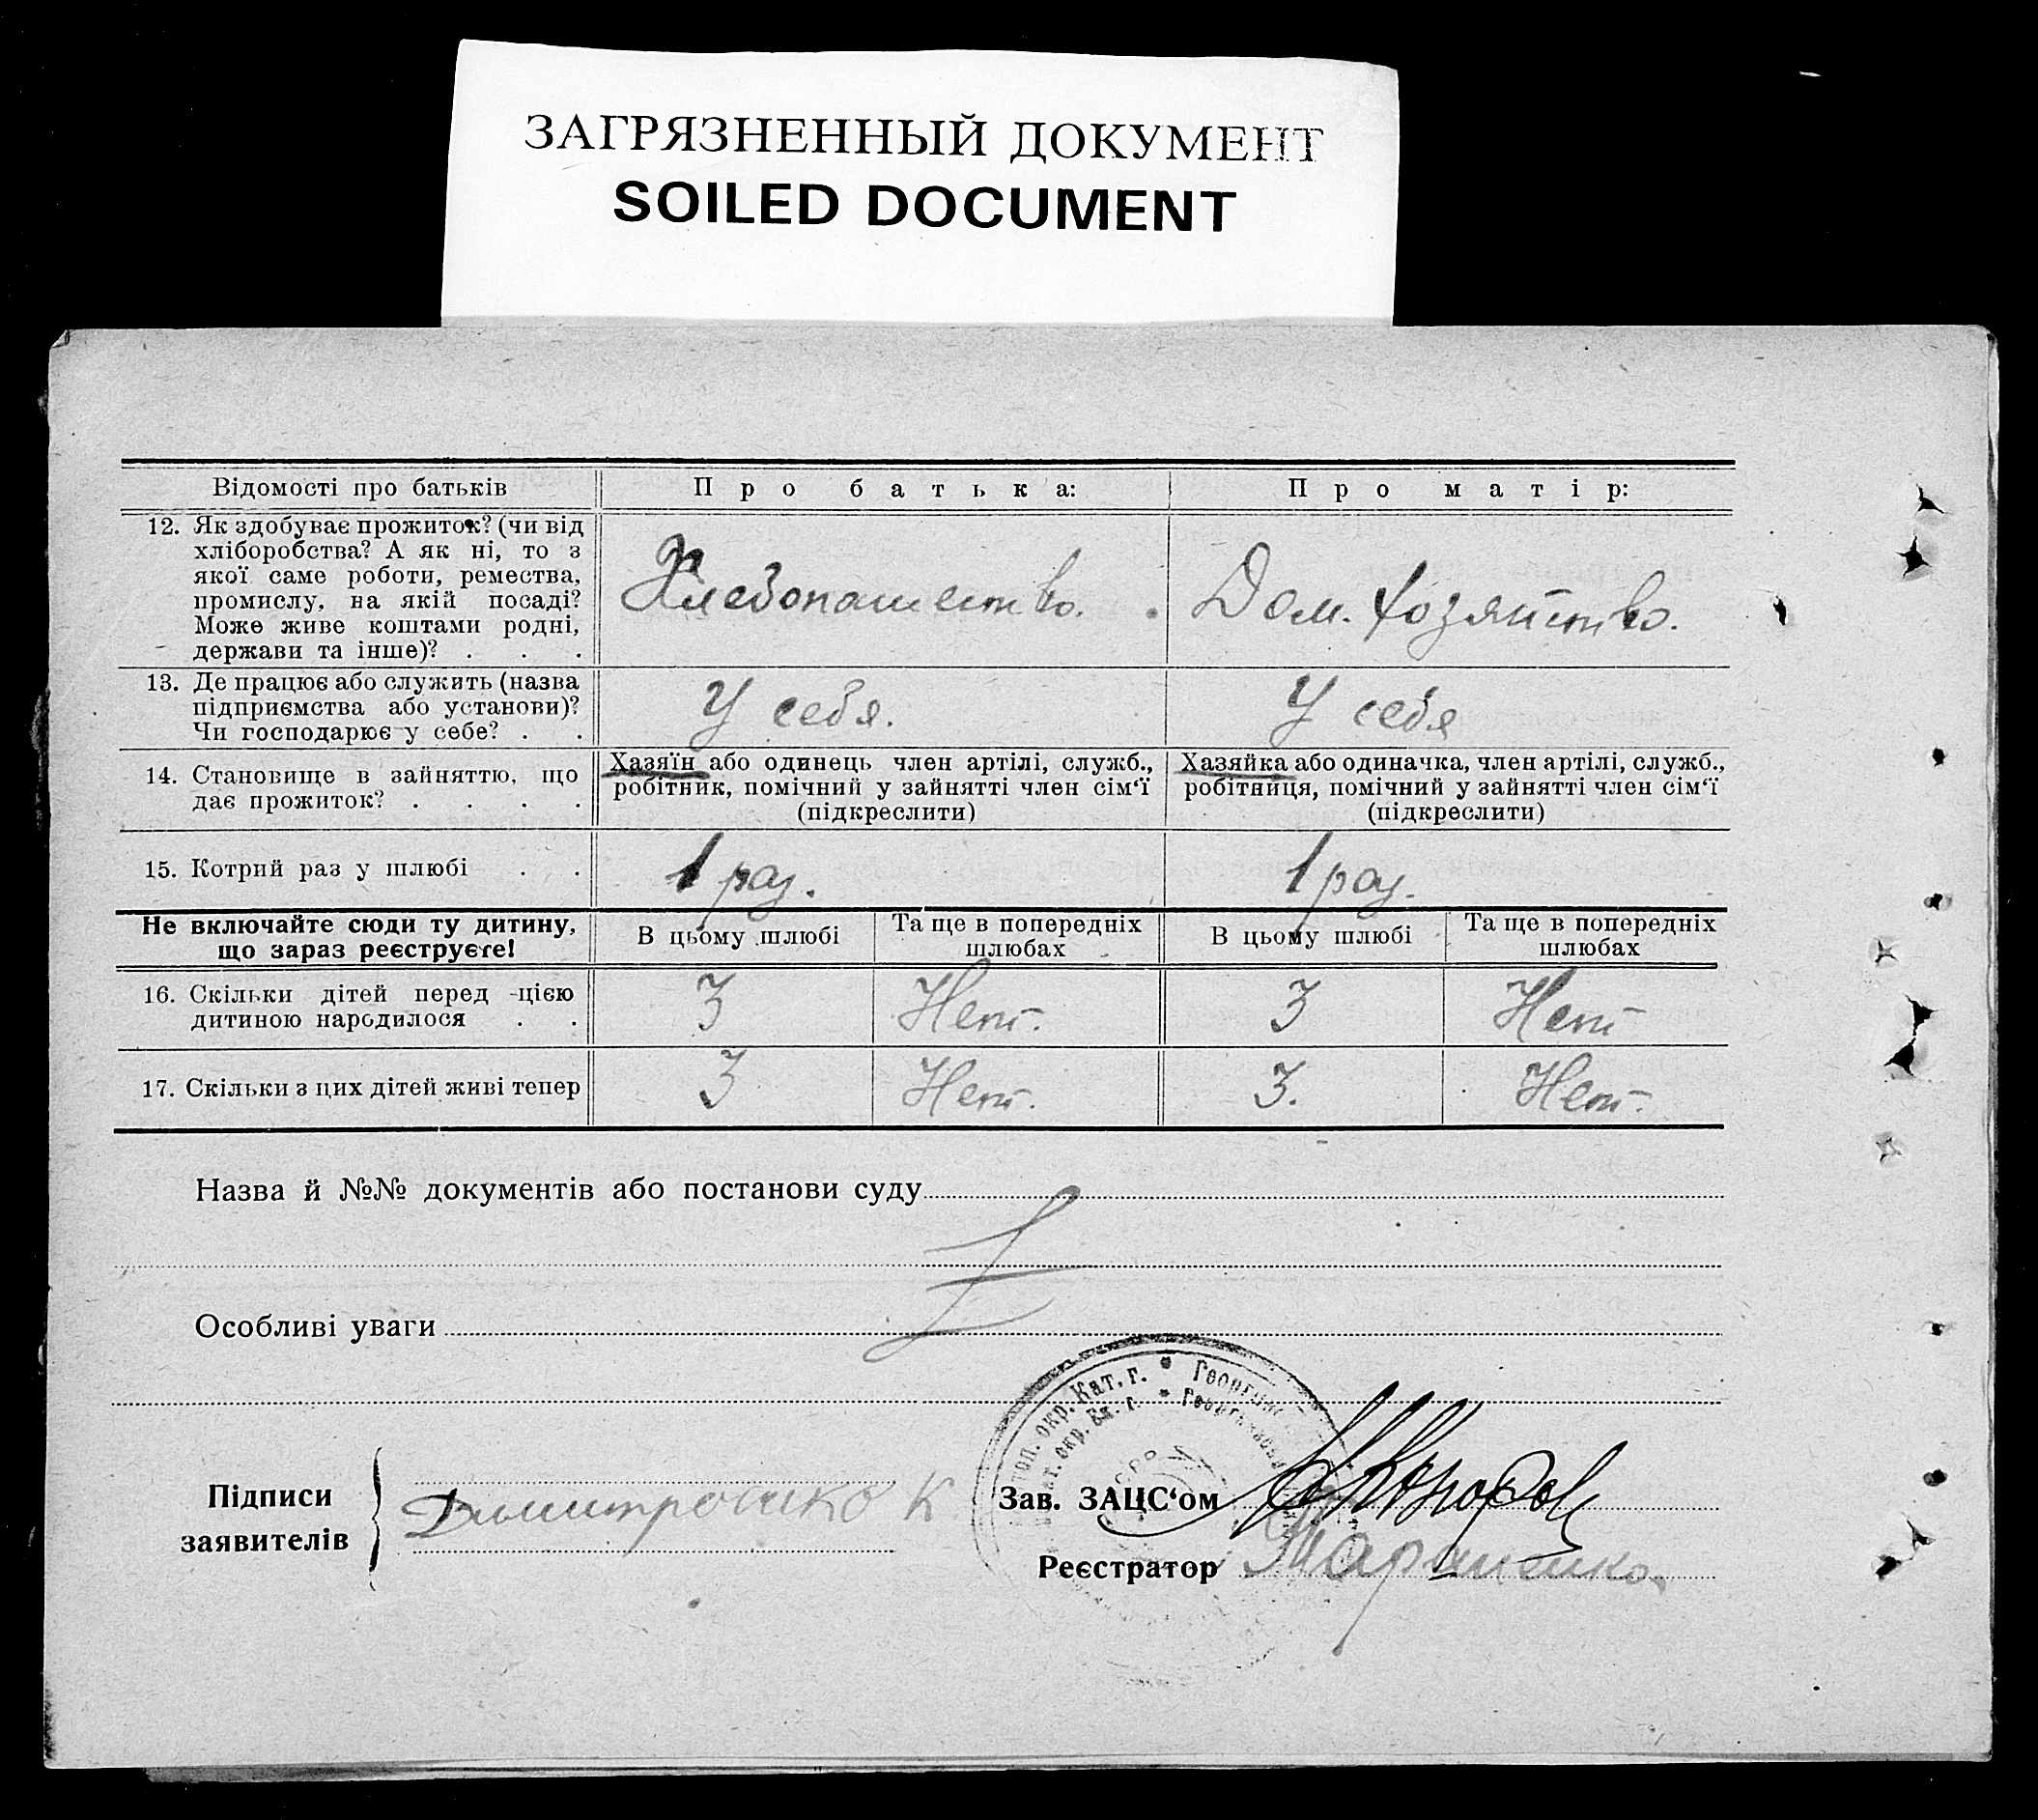 ЗАГРЯЗНЕННЫЙ ДОКУМЕНТ
SOILED DOCUMENT
Відомості про батьків
Про батька:
Про матір:
12. Як здобуває прожиток? (чи від
хліборобства? А як ні, то з
якої саме роботи, ремества,
промислу, на якій посаді?
Може живе коштами родні,
держави та інше)? . . .
Хлебопашество.
Дом. хозяйство.
13. Де працює або служить (назва
підприємства або установи)?
Чи господарює у себе? . .
У себя.
У себя
14. Становище в зайняттю, що
дає прожиток? . . . .
Хазяїн або одинець член артілі, служб.,
робітник, помічний у зайнятті член сім‘ї
(підкреслити)
Хазяйка або одиначка, член артілі, служб.,
робітниця, помічний у зайнятті член сім‘ї
(підкреслити)
15. Котрий раз у шлюбі . .
1 раз.
1 раз.
Не включайте сюди ту дитину,
що зараз реєструєте!
В цьому шлюбі
Та ще в попередніх
шлюбах
В цьому шлюбі
Та ще в попередніх
шлюбах
16. Скільки дітей перед цією
дитиною народилося . .
3
Нет.
3
Нет
17. Скільки з цих дітей живі тепер
3
Нет.
3.
Нет.
Назва й №№ документів або постанови суду
Особливі уваги
окр. Кат. г. * Георг
окр. Ек. г. * Георг
Підписи
заявителів
К
Зав. ЗАЦС‘ом
Реєстратор